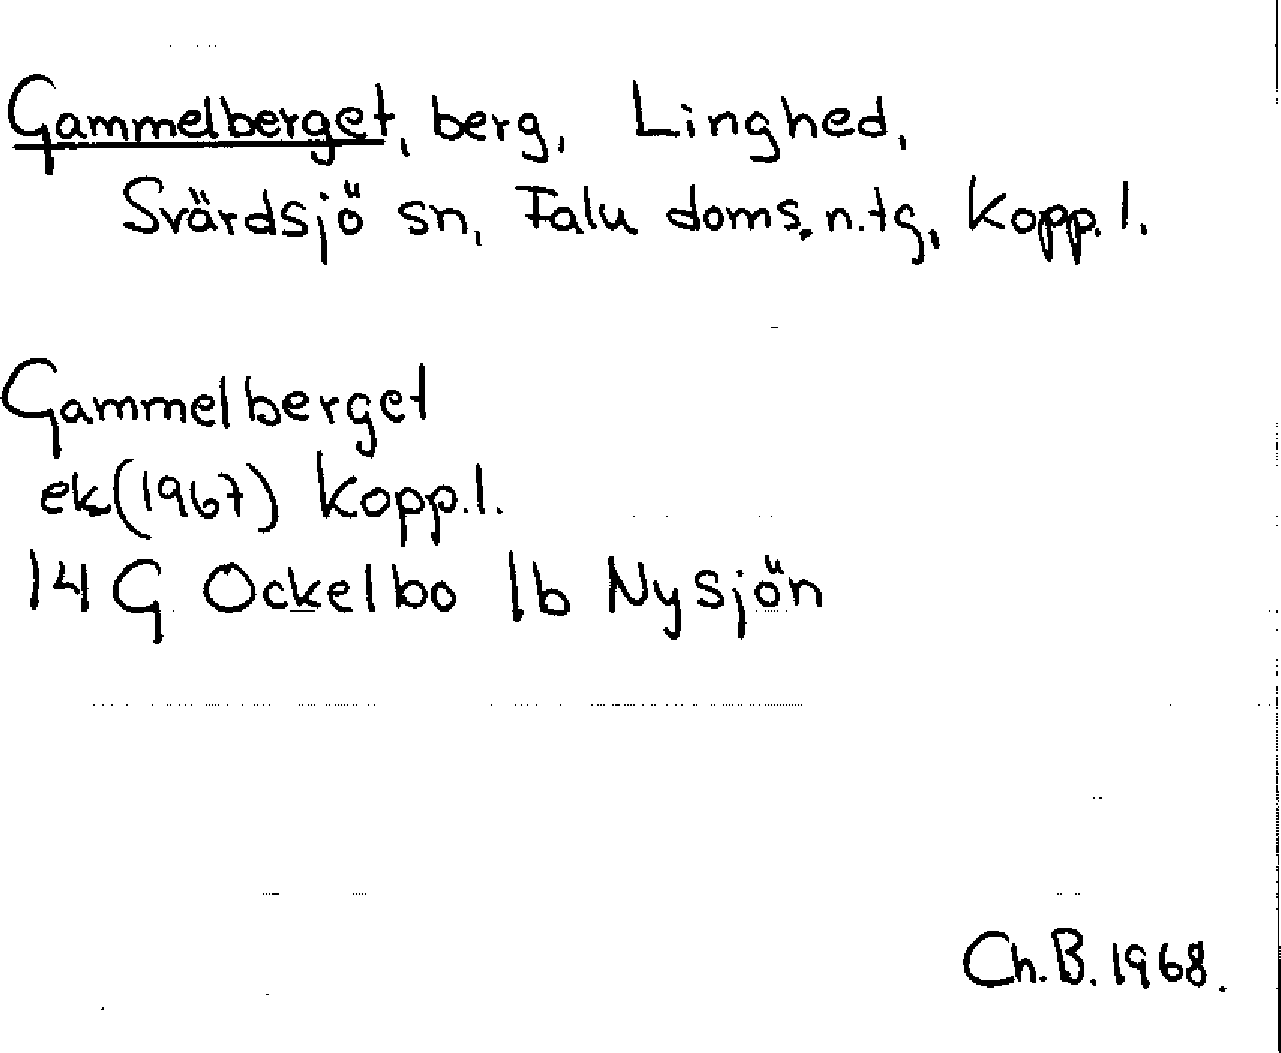 Gammelberget, berg, Linghed,
Svärdsjö sn, Falu doms. n.tg, Kopp. l.
Gammelberget
ek(1967) Kopp.l.
14 G Ockelbo 1b Nysjön
Ch.B. 1968.